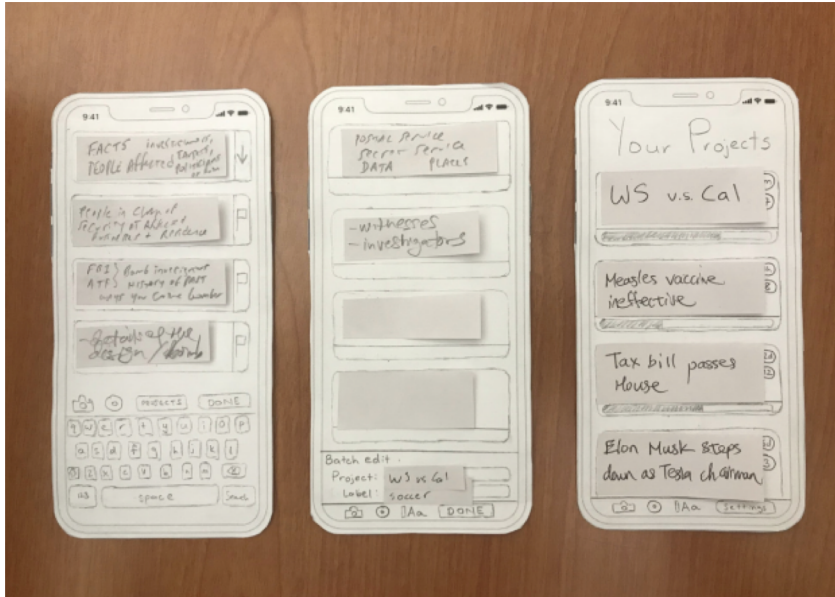 9:41
FACTS investigators,
PEOPLE Affected, Targets,
People in Charge of
Security at Airport
FBI } Bomb investigment
ATF } History of past
- details of the
design / bomb
PROJECTS DONE
q w e r t y u i o p
a s d f g h j k l
z x c v b n m
space Search
9:41
POSTAL SERVICE
Secret Service
DATA PLACES
- witnesses
- investigators
Batch edit
Project: WS vs Cal
Label: soccer
Aa DONE
9:41
Your Projects
WS v.s. Cal
Measles vaccine
ineffective
Tax bill passes
House
Elon Musk steps
down as Tesla chairman
Aa Settings